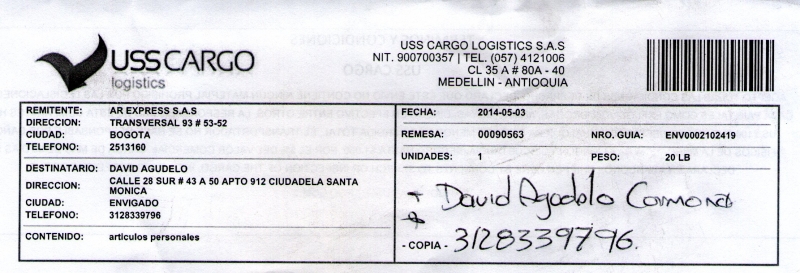 USSCARGO
logistics
USS CARGO LOGISTICS S.A.S
NIT. 900700357 | TEL. (057) 4121006
CL 35 A # 80A - 40
MEDELLIN - ANTIOQUIA
REMITENTE: AR EXPRESS S.A.S
DIRECCION: TRANSVERSAL 93 # 53-52
CIUDAD: BOGOTA
TELEFONO: 2513160
DESTINATARIO: DAVID AGUDELO
DIRECCION: CALLE 28 SUR # 43 A 50 APTO 912 CIUDADELA SANTA
MONICA
CIUDAD: ENVIGADO
TELEFONO: 3128339796
CONTENIDO: articulos personales
FECHA: 2014-05-03
REMESA: 00090563 NRO. GUIA: ENV0002102419
UNIDADES: 1 PESO: 20 LB
David Agudelo Carmona
- COPIA - 3128339796.